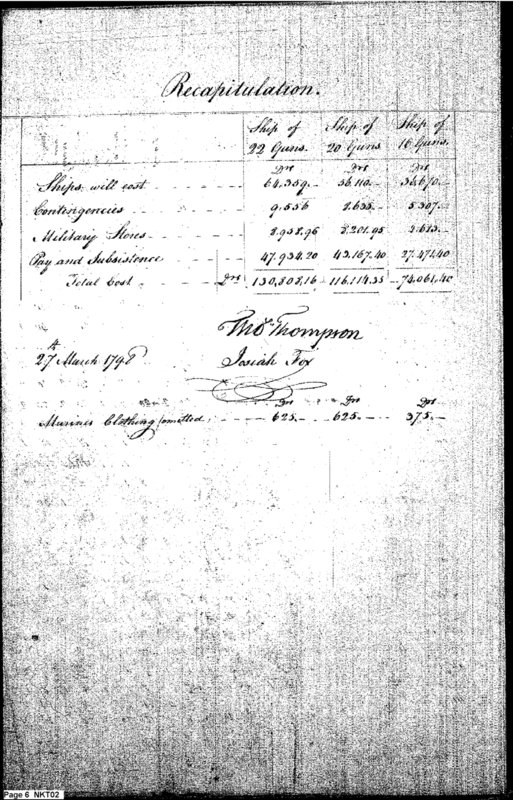 Recapitulation.
Ship of Ship of Ship of
22 Guns. 20 Guns 16 Guns.
Drs Drs Drs
Ships will cost 64.359.— 56.110.— 36.670.—
Contingencies 9.556 8.635.— 5.307.—
Military Stores 8.958.96 8.201.95 4.613.—
Pay and Subsistence 47.934.20 43.167.40 27.471.40
Total Cost Drs 130.808.16 116.114.35 74.061.40
Tho.s Thompson
27th March 1798 Josiah Fox
Drs Drs Drs
Marines Clothing omitted 625.— 625.— 375.—
Page 6 NKT02